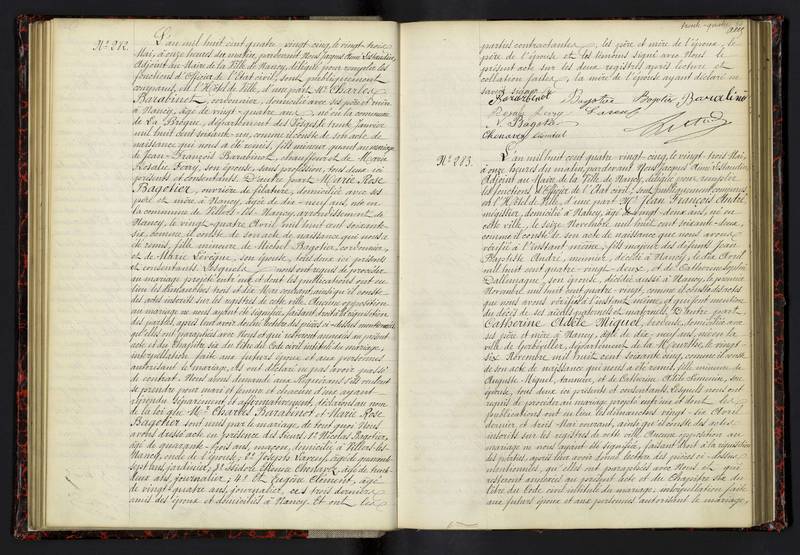 N° 212. L'an mil huit cent quatre-vingt-cinq, le vingt-trois
Mai, à onze heures du matin, pardevant Nous Jacques Aimé
Adjoint au Maire de la Ville de Nancy, délégué pour remplir les
fonctions d'Officier de l'Etat civil, sont publiquement
comparus, en l'Hôtel de Ville, d'une part Mr Charles
Barabinot, cordonnier, domicilié avec ses père et mère
à Nancy, âgé de vingt-quatre ans, né en la commune
de La Bresse, département des Vosges, le trente Janvier
mil huit cent soixante-un, comme il conste de son acte de
naissance qui nous a été remis, fils mineur quant au mariage
de Jean-François Barabinot, chauffeur, et de Marie
Rosalie Ferry, son épouse, sans profession, tous deux ici
présents et consentants. D'autre part Marie Rose
Bagotier, ouvrière de filature, domiciliée avec ses
père et mère à Nancy, âgée de dix-neuf ans, née en
la commune de Villers-lès-Nancy, arrondissement de
Nancy, le vingt-quatre Avril mil huit cent soixante-
six, comme il conste de son acte de naissance qui nous a
été remis, fille mineure de Michel Bagotier, cordonnier,
et de Marie Lévêque, son épouse, tous deux ici présents
et consentants. Lesquels nous ont requis de procéder
au mariage projeté entre eux et dont les publications ont eu
lieu les dimanches trois et dix Mai courant, ainsi qu'il conste
des actes inscrits sur les registres de cette ville. Aucune opposition
au mariage ne nous ayant été signifiée, faisant droit à la réquisition
des parties, après leur avoir donné lecture des pièces ci-dessus mentionnées
qu'elles ont paraphées avec Nous et qui resteront annexées au présent
acte et du Chapitre six du titre du Code civil intitulé du mariage,
interpellation faite aux futurs époux et aux personnes
autorisant le mariage, ils ont déclaré n'avoir pas passé
de contrat. Nous avons demandé aux Requérants s'ils veulent
se prendre pour mari et femme et chacun d'eux ayant
répondu séparément et affirmativement, déclarons au nom
de la loi que Mr Charles Barabinot et Marie Rose
Bagotier sont unis par le mariage, de tout quoi Nous
avons dressé acte en présence des Sieurs 1° Nicolas Bagotier,
âgé de quarante-trois ans, maçon, domicilié à Villers-lès-
Nancy, oncle de l'épouse, 2° Joseph Larcus, âgé de quarante-
sept ans, jardinier, 3° Isidore Chenavez, âgé de trente-
deux ans, journalier, 4° Et Eugène Clément, âgé
de vingt-quatre ans, journalier, ces trois derniers
amis des époux et domiciliés à Nancy. Et ont les
parties contractantes, les père et mère de l'époux, le
père de l'épouse et les témoins signé avec Nous le
présent acte sur les deux registres après lecture et
collation faites, la mère de l'épouse ayant déclaré ne
savoir signer.
Barabinot Bagotier Bagotier Barabino
Rosalie Ferry
N. Bagotier
Chenavez
N° 213. L'an mil huit cent quatre-vingt-cinq, le vingt-trois Mai,
à onze heures du matin, pardevant Nous Jacques Aimé
Adjoint au Maire de la Ville de Nancy, délégué pour remplir
les fonctions d'Officier de l'Etat civil, sont publiquement comparus
en l'Hôtel de Ville, d'une part Mr Jean François André
mégissier, domicilié à Nancy, âgé de vingt-deux ans, né en
cette ville, le seize Novembre mil huit cent soixante-deux,
comme il conste de son acte de naissance que nous avons
vérifié à l'instant même, fils majeur des défunts Jean
Baptiste André, meunier, décédé à Nancy, le dix Avril
mil huit cent quatre-vingt-deux, et de Catherine
Dallemagne, son épouse, décédée aussi à Nancy, le premier
Novembre mil huit cent quatre-vingt, comme il conste des actes
que nous avons vérifiés à l'instant même, et qui font mention
du décès de ses aïeuls paternels et maternels. D'autre part
Catherine Adèle Miquel, brodeuse, domiciliée avec
ses père et mère à Nancy, âgée de dix-neuf ans, née en la
ville de Gerbéviller, département de la Meurthe, le vingt-
six Novembre mil huit cent soixante-cinq, comme il conste
de son acte de naissance qui nous a été remis, fille mineure de
Auguste Miquel, tanneur, et de Catherine Adèle son
épouse, tous deux ici présents et consentants. Lesquels nous ont
requis de procéder au mariage projeté entre eux et dont les
publications ont eu lieu les dimanches vingt-six Avril
dernier et trois Mai courant, ainsi qu'il conste des actes
inscrits sur les registres de cette ville. Aucune opposition au
mariage ne nous ayant été signifiée, faisant droit à la réquisition
des parties, après leur avoir donné lecture des pièces ci-dessus
mentionnées, qu'elles ont paraphées avec Nous et qui
resteront annexées au présent acte et du Chapitre six du
titre du Code civil intitulé du mariage, interpellation faite
aux futurs époux et aux personnes autorisant le mariage,